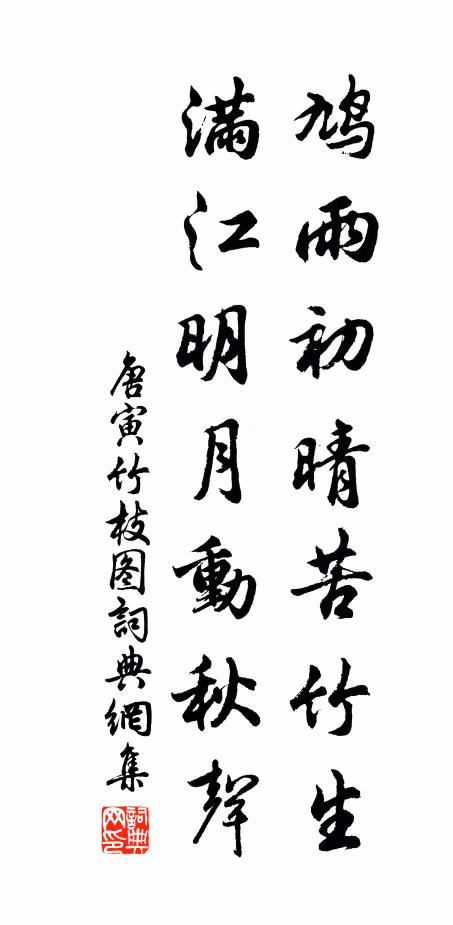 鳩雨初晴苦竹生
滿江明月動秋聲
唐寅竹枝图詞典網集
詞典
网印